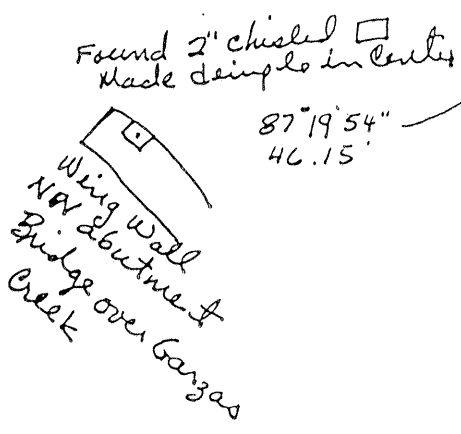 Found 2" chisled □
Made dimple in Center
87°19'54"
46.15'
Wing Wall
NW abutment
Bridge over Garzas
Creek